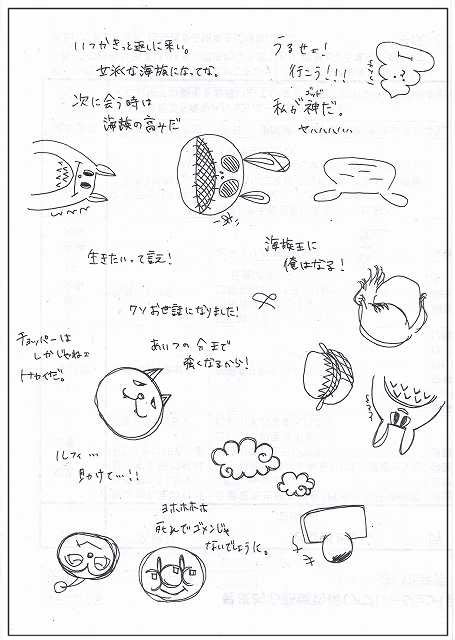 いつかきっと返しに来い。
立派な海族になってな。
次に会う時は
海族の高みだ
うるせェ!
行こう!!!
ゴッド
私が神だ。
ヤハハハハ
海族王に
俺はなる!
生きたいって言え!
クソお世話になりました!
チョッパーは
しかじゃねェ
トナカイだ。
あいつの分まで
強くなるから!
ルフィ…
助けて…!!
ヨホホホホ
死んでゴメンじゃ
ないでしょうに。